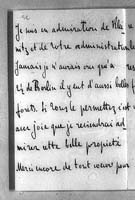 Je suis en admiration de Ville
et de Votre administration
jamais je n'aurais cru qu'a
de Berlin il y eut d'aussi belles
forêts. Si Vous le permettez c'est
avec joie que je reviendrai ad-
mirer cette belle propriété
Merci encore de tout cœur pour